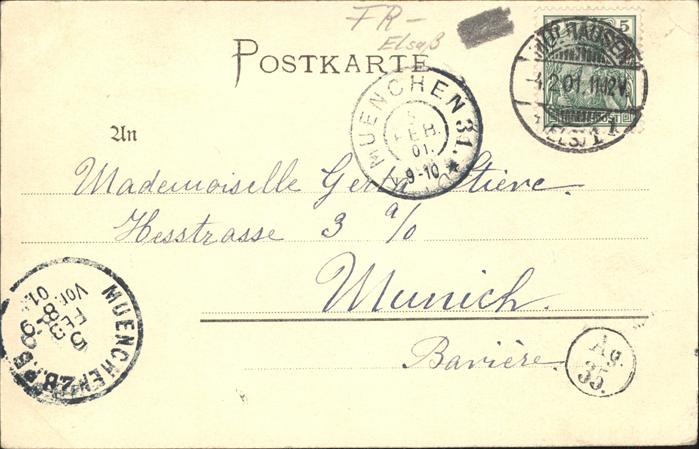 FR-
Elsaß
POSTKARTE
5
MÜLHAUSEN
4.2.01.11-12V.
(ELS.) 1
MUENCHEN 31.
5
FEB.
01.
9-10
An
Mademoiselle Gerta Stieve.
Hesstrasse 3 a/o
Munich.
Bavière.
MUENCHEN
5
FEB
8-9
Vor.
01
Ag.
35.